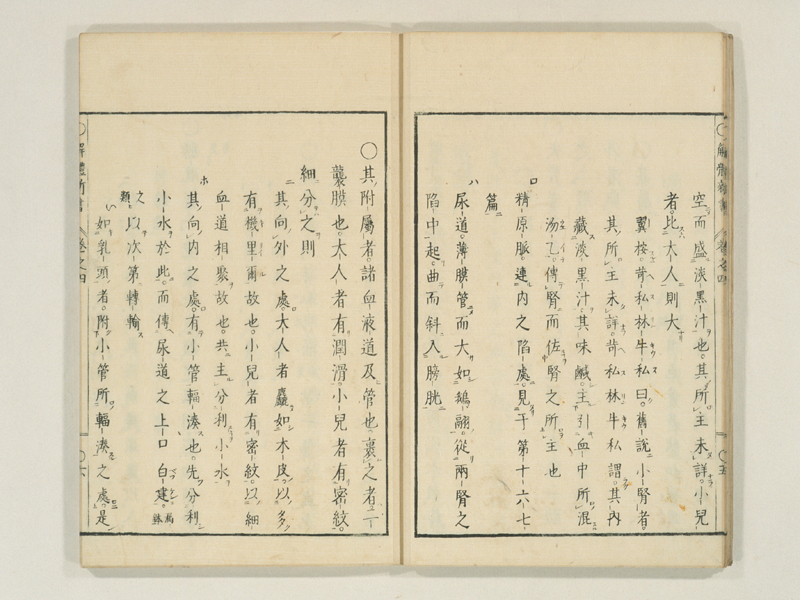 空而盛淡黑汁也。其所主未詳。小兒
者比大人則大
翼按苛私林牛私曰。舊說小腎者。
其所主未詳。苛私林牛私謂。其內
藏淡黑汁。其味鹹。主引血中所混
汤乙。傳腎而佐腎之所主也
ロ
精原脈。連內之陷處。見于第十六七
篇
ハ
尿道。薄膜管而大如鵝翮。從兩腎之
陷中起。曲而斜入膀胱
解體新書
卷之四
〇五
〇其附屬者。諸血液道及管也。裹之者二
襲膜也。大人者有潤滑。小兒者有密紋。
細分之則
ニ
其向外之處。大人者麤如木皮。以多
有機里爾故也。小兒者有密紋。以細
血道相聚故也。共主分利小水
ホ
其向內之處。有小管輻湊也。先分利
小水於此。而傳尿道之上口
之類。以次第轉輸
い
如乳頭者。附小管所輻湊之處。是
解體新書
卷之四
〇六